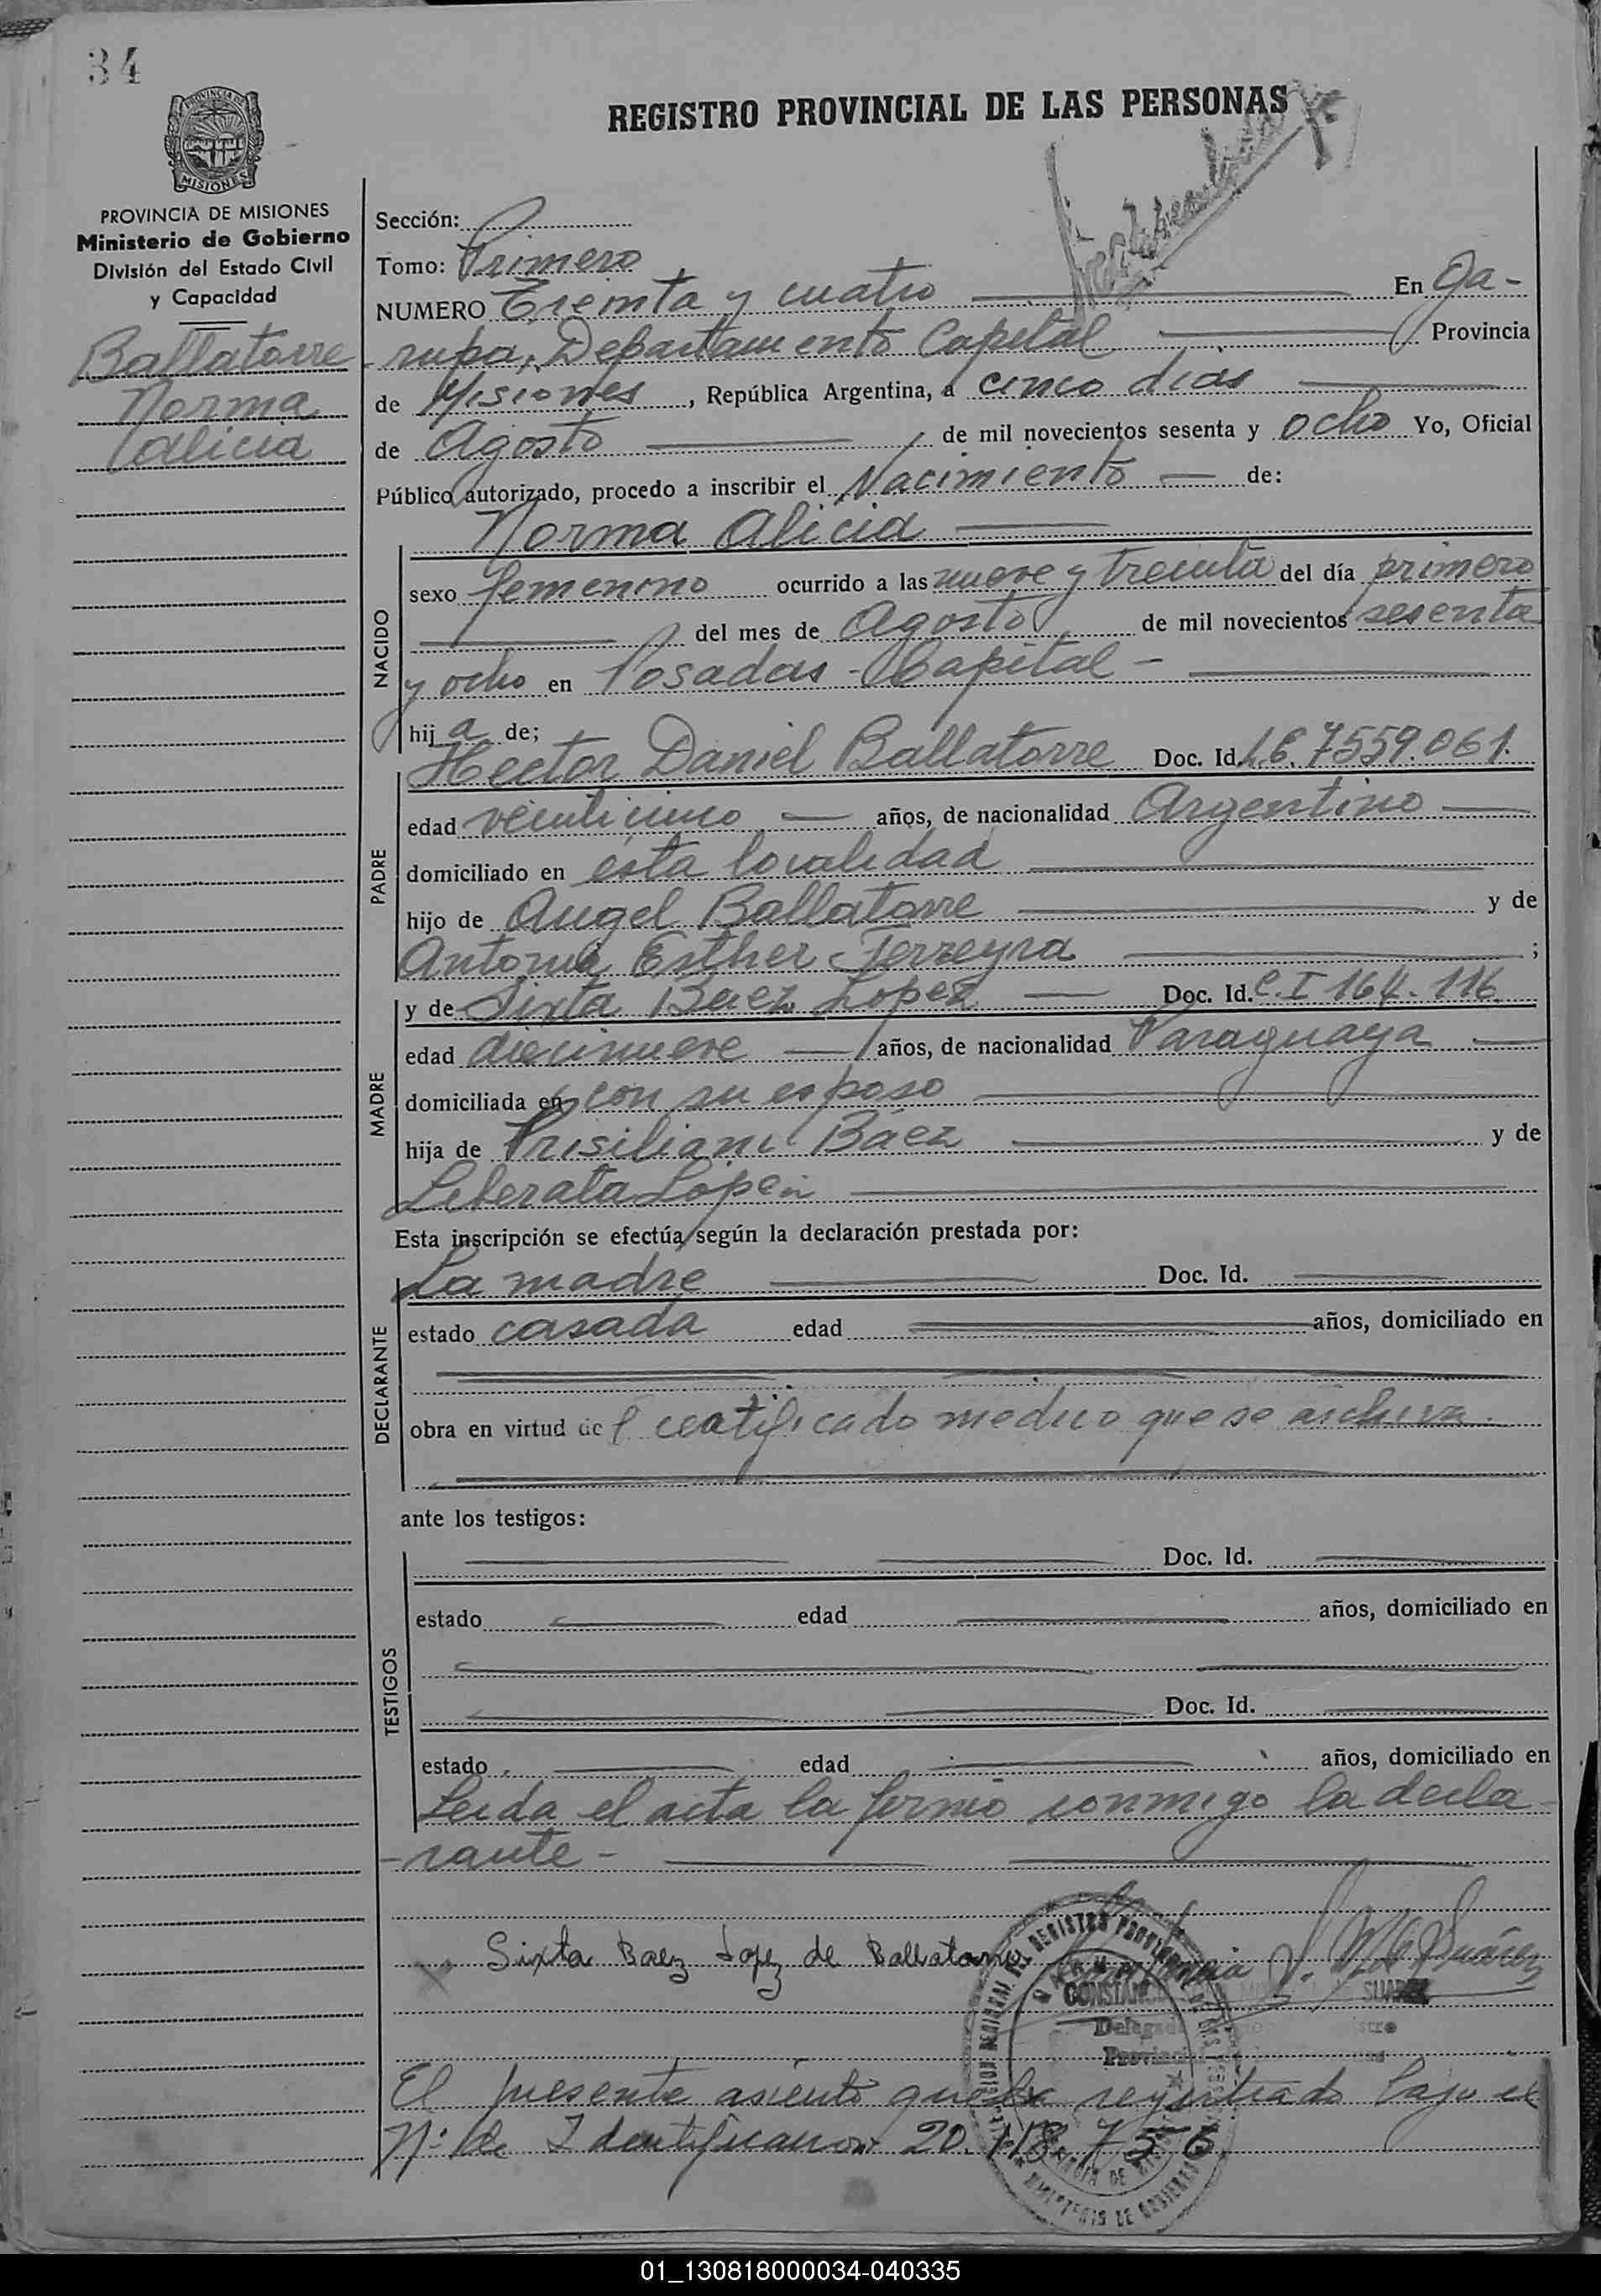 34
PROVINCIA DE MISIONES
Ministerio de Gobierno
División del Estado Civil
y Capacidad
Ballatorre
Norma
Alicia
REGISTRO PROVINCIAL DE LAS PERSONAS
Sección:
Tomo: Primero
NUMERO Treinta y cuatro En Ga-
rupa, Departamento Capital Provincia
de Misiones, República Argentina, a cinco días
de Agosto de mil novecientos sesenta y ocho Yo, Oficial
Público autorizado, procedo a inscribir el Nacimiento de:
Norma Alicia
NACIDO
sexo femenino ocurrido a las nueve y treinta del día primero
del mes de Agosto de mil novecientos sesenta
y ocho en Posadas - Capital -
hija de;
Hector Daniel Ballatorre Doc. Id. L.E. 7559.061.
PADRE
edad veinticinco años, de nacionalidad Argentino
domiciliado en ésta localidad
hijo de Angel Ballatorre y de
Antonia Esther Ferreyra ;
MADRE
y de Sixta Baez Lopez Doc. Id. C.I 164.116.
edad diecinueve años, de nacionalidad Paraguaya
domiciliada en con su esposo
hija de Prisiliano Báez y de
Liberata López
Esta inscripción se efectúa según la declaración prestada por:
DECLARANTE
La madre Doc. Id.
estado casada edad años, domiciliado en
obra en virtud del certificado medico que se archiva.
ante los testigos:
TESTIGOS
Doc. Id.
estado edad años, domiciliado en
Doc. Id.
estado edad años, domiciliado en
Leida el acta la firmó conmigo la decla-
-rante-
Sixta Baez Lopez de Ballatorre
El presente asiento queda registrado bajo el
N° de Identificacion 20.118.756
01_130818000034-040335